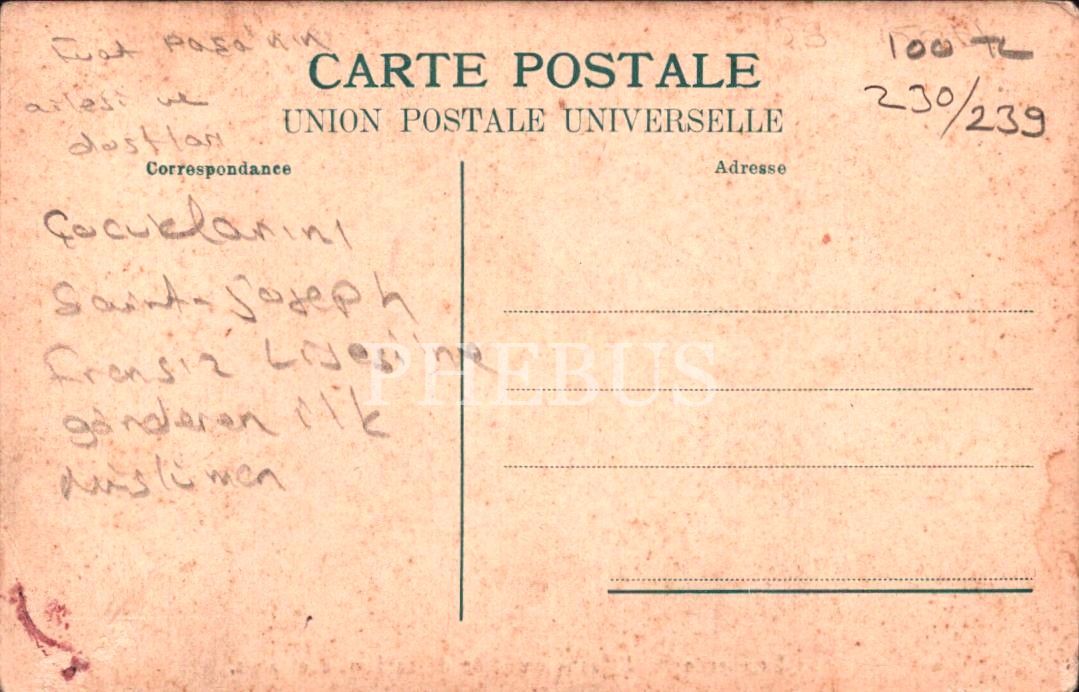 Fuat Paşa'nın
ailesi ve
dostları
100 TL
230/239
CARTE POSTALE
UNION POSTALE UNIVERSELLE
Correspondance
Adresse
Çocuklarını
Saint-Joseph
Fransız Lisesine
gönderen ilk
müslüman
PHEBUS